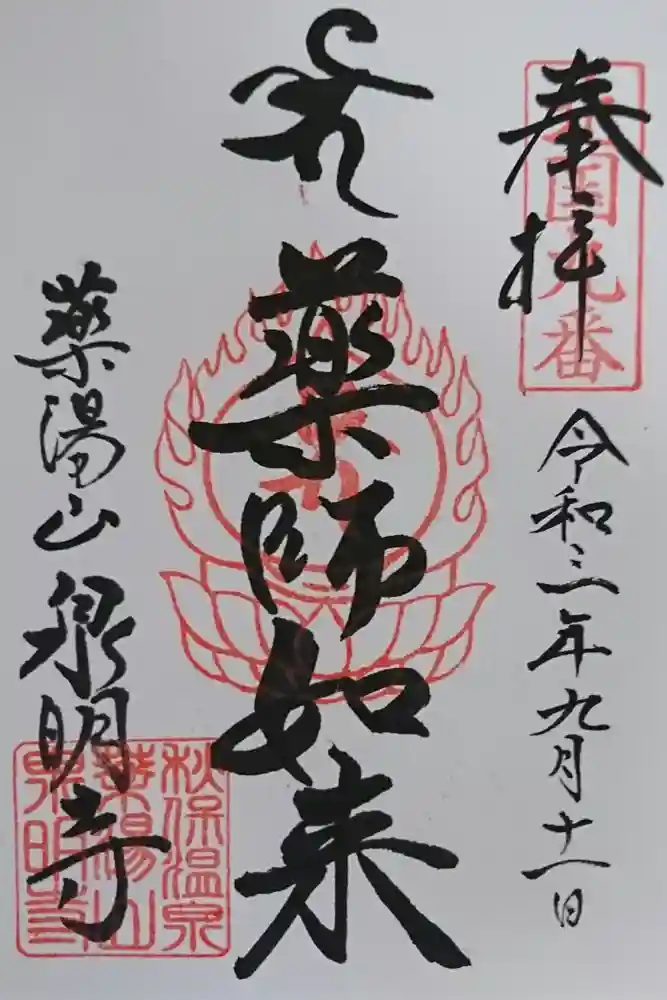 奉拝
国九番
令和三年九月十一日
薬師如来
薬湯山
泉明寺
秋保温泉
薬湯山
泉明寺